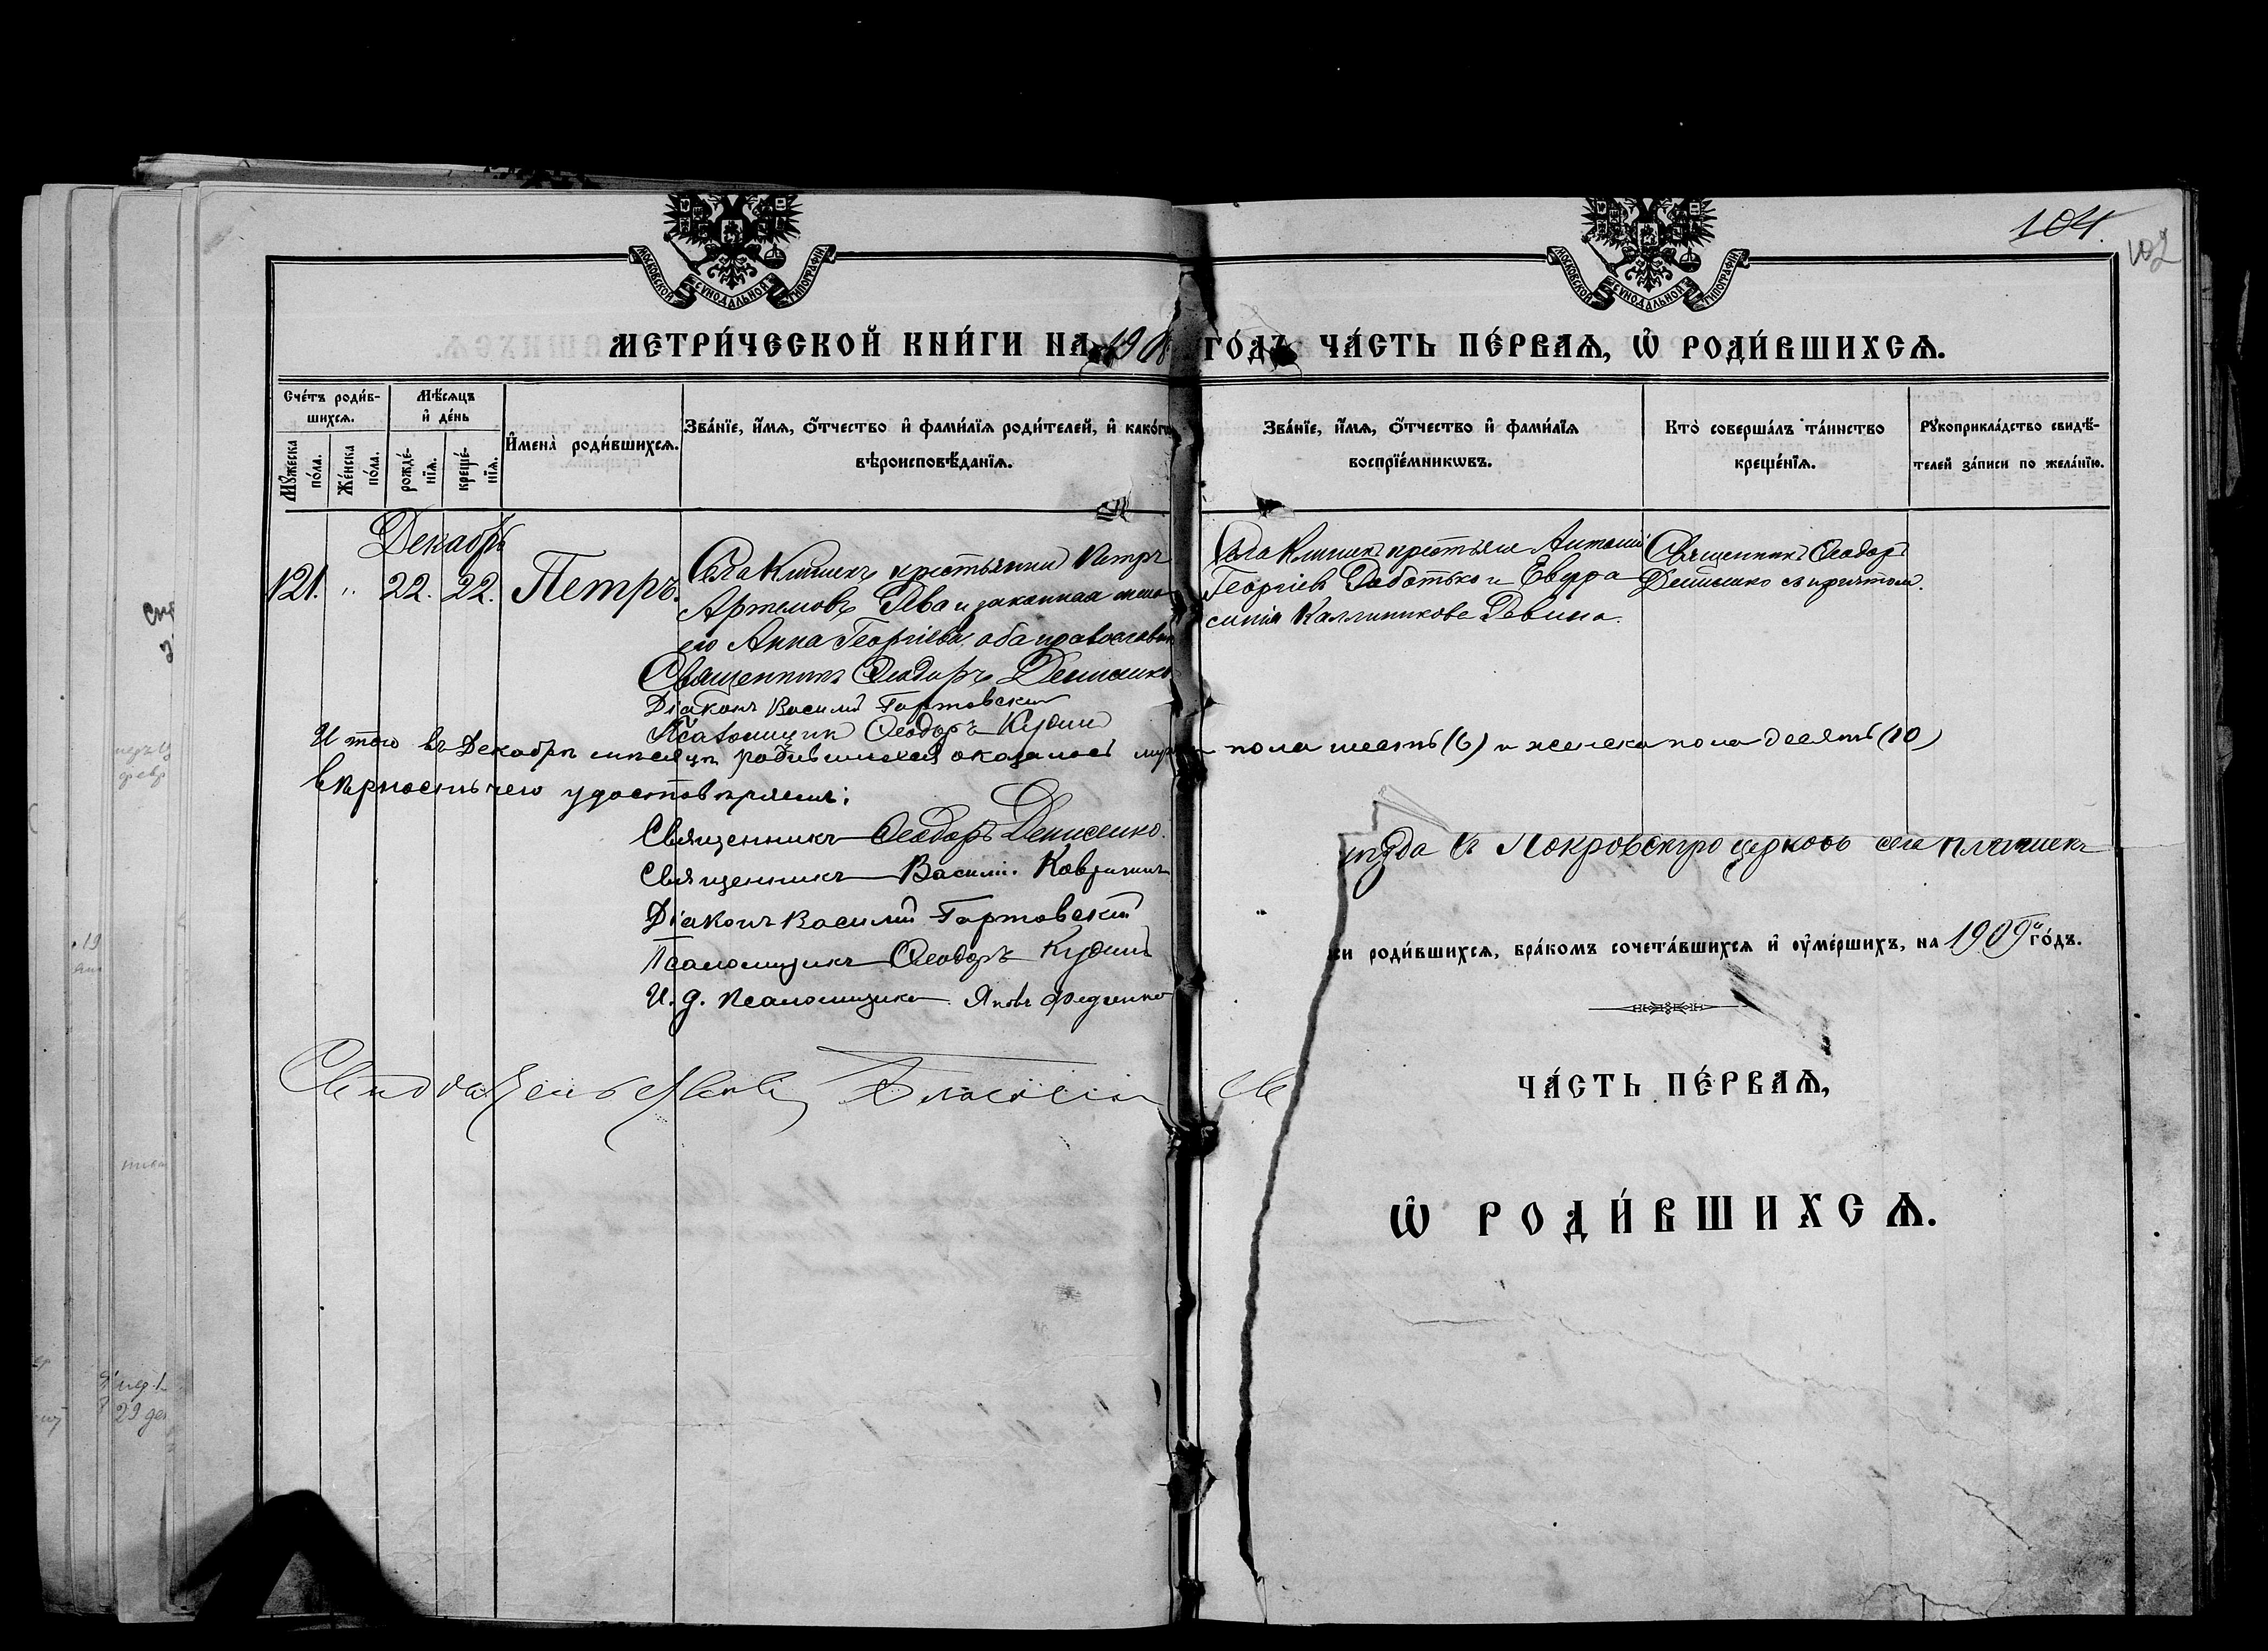 104.
102
МОСКОВСКОЙ СѴНОДАЛЬНОЙ ТИПОГРАФІИ
МОСКОВСКОЙ СѴНОДАЛЬНОЙ ТИПОГРАФІИ
МЕТРИ́ЧЕСКОЙ КНИ́ГИ НА 190 ГО́ДЪ ЧА́СТЬ ПЕ́РВАѦ, Ѡ҆ РОДИ́ВШИХСѦ.
Сче́тъ роди́в-
шихся.
Мѣ́сяцъ
и҆ де́нь
Му́жеска
по́ла.
Же́нска
по́ла.
рожде́-
нїя.
креще́-
нїя.
И҆мена̀ роди́вшихся.
Зва́нїе, и҆́мя, ѻ҆́тчество и҆ фами́лїя роди́телей, и҆ како́гѡ
вѣроисповѣ́данїя.
Зва́нїе, и҆́мя, ѻ҆́тчество и҆ фами́лїя
воспрїе́мникѡвъ.
Кто̀ соверша́лъ та́инство
креще́нїя.
Рꙋкоприкла́дство свидѣ́-
телей за́писи по жела́нїю.
Декабрь
121. " 22. 22. Петръ.
Села Клишекъ крестьянинъ Петръ
Артемовъ Дева и законная жена
его Анна Георгіева, оба православн
Села Клишекъ крестьяне Антоній
Георгіевъ Работько и Евфро
синія Каллиникова Девина.
Священникъ Ѳеодоръ
Денисенко съ причтомъ.
Священникъ Ѳеодоръ Денисенко
Діаконъ Василій Гортовскій
Псаломщикъ Ѳеодоръ Кудинъ
Итого въ Декабрѣ мѣсяцѣ родившихся оказалось муж пола шесть (6) и женска пола десять (10)
Вѣрность чего удостовѣряемъ:
Священникъ Ѳеодоръ Денисенко.
Священникъ Василій
Діаконъ Василій Гортовскій
Псаломщикъ Ѳеодоръ Кудинъ
И. д. псаломщика Яковъ
уѣзда въ Покровскую церковь села Клишекъ
ги роди́вшихся, бра́комъ сочета́вшихся и҆ ᲂу҆ме́ршихъ, на 1909й го́дъ.
ЧА́СТЬ ПЕ́РВАѦ,
Ѡ҆ РОДИ́ВШИХСѦ.